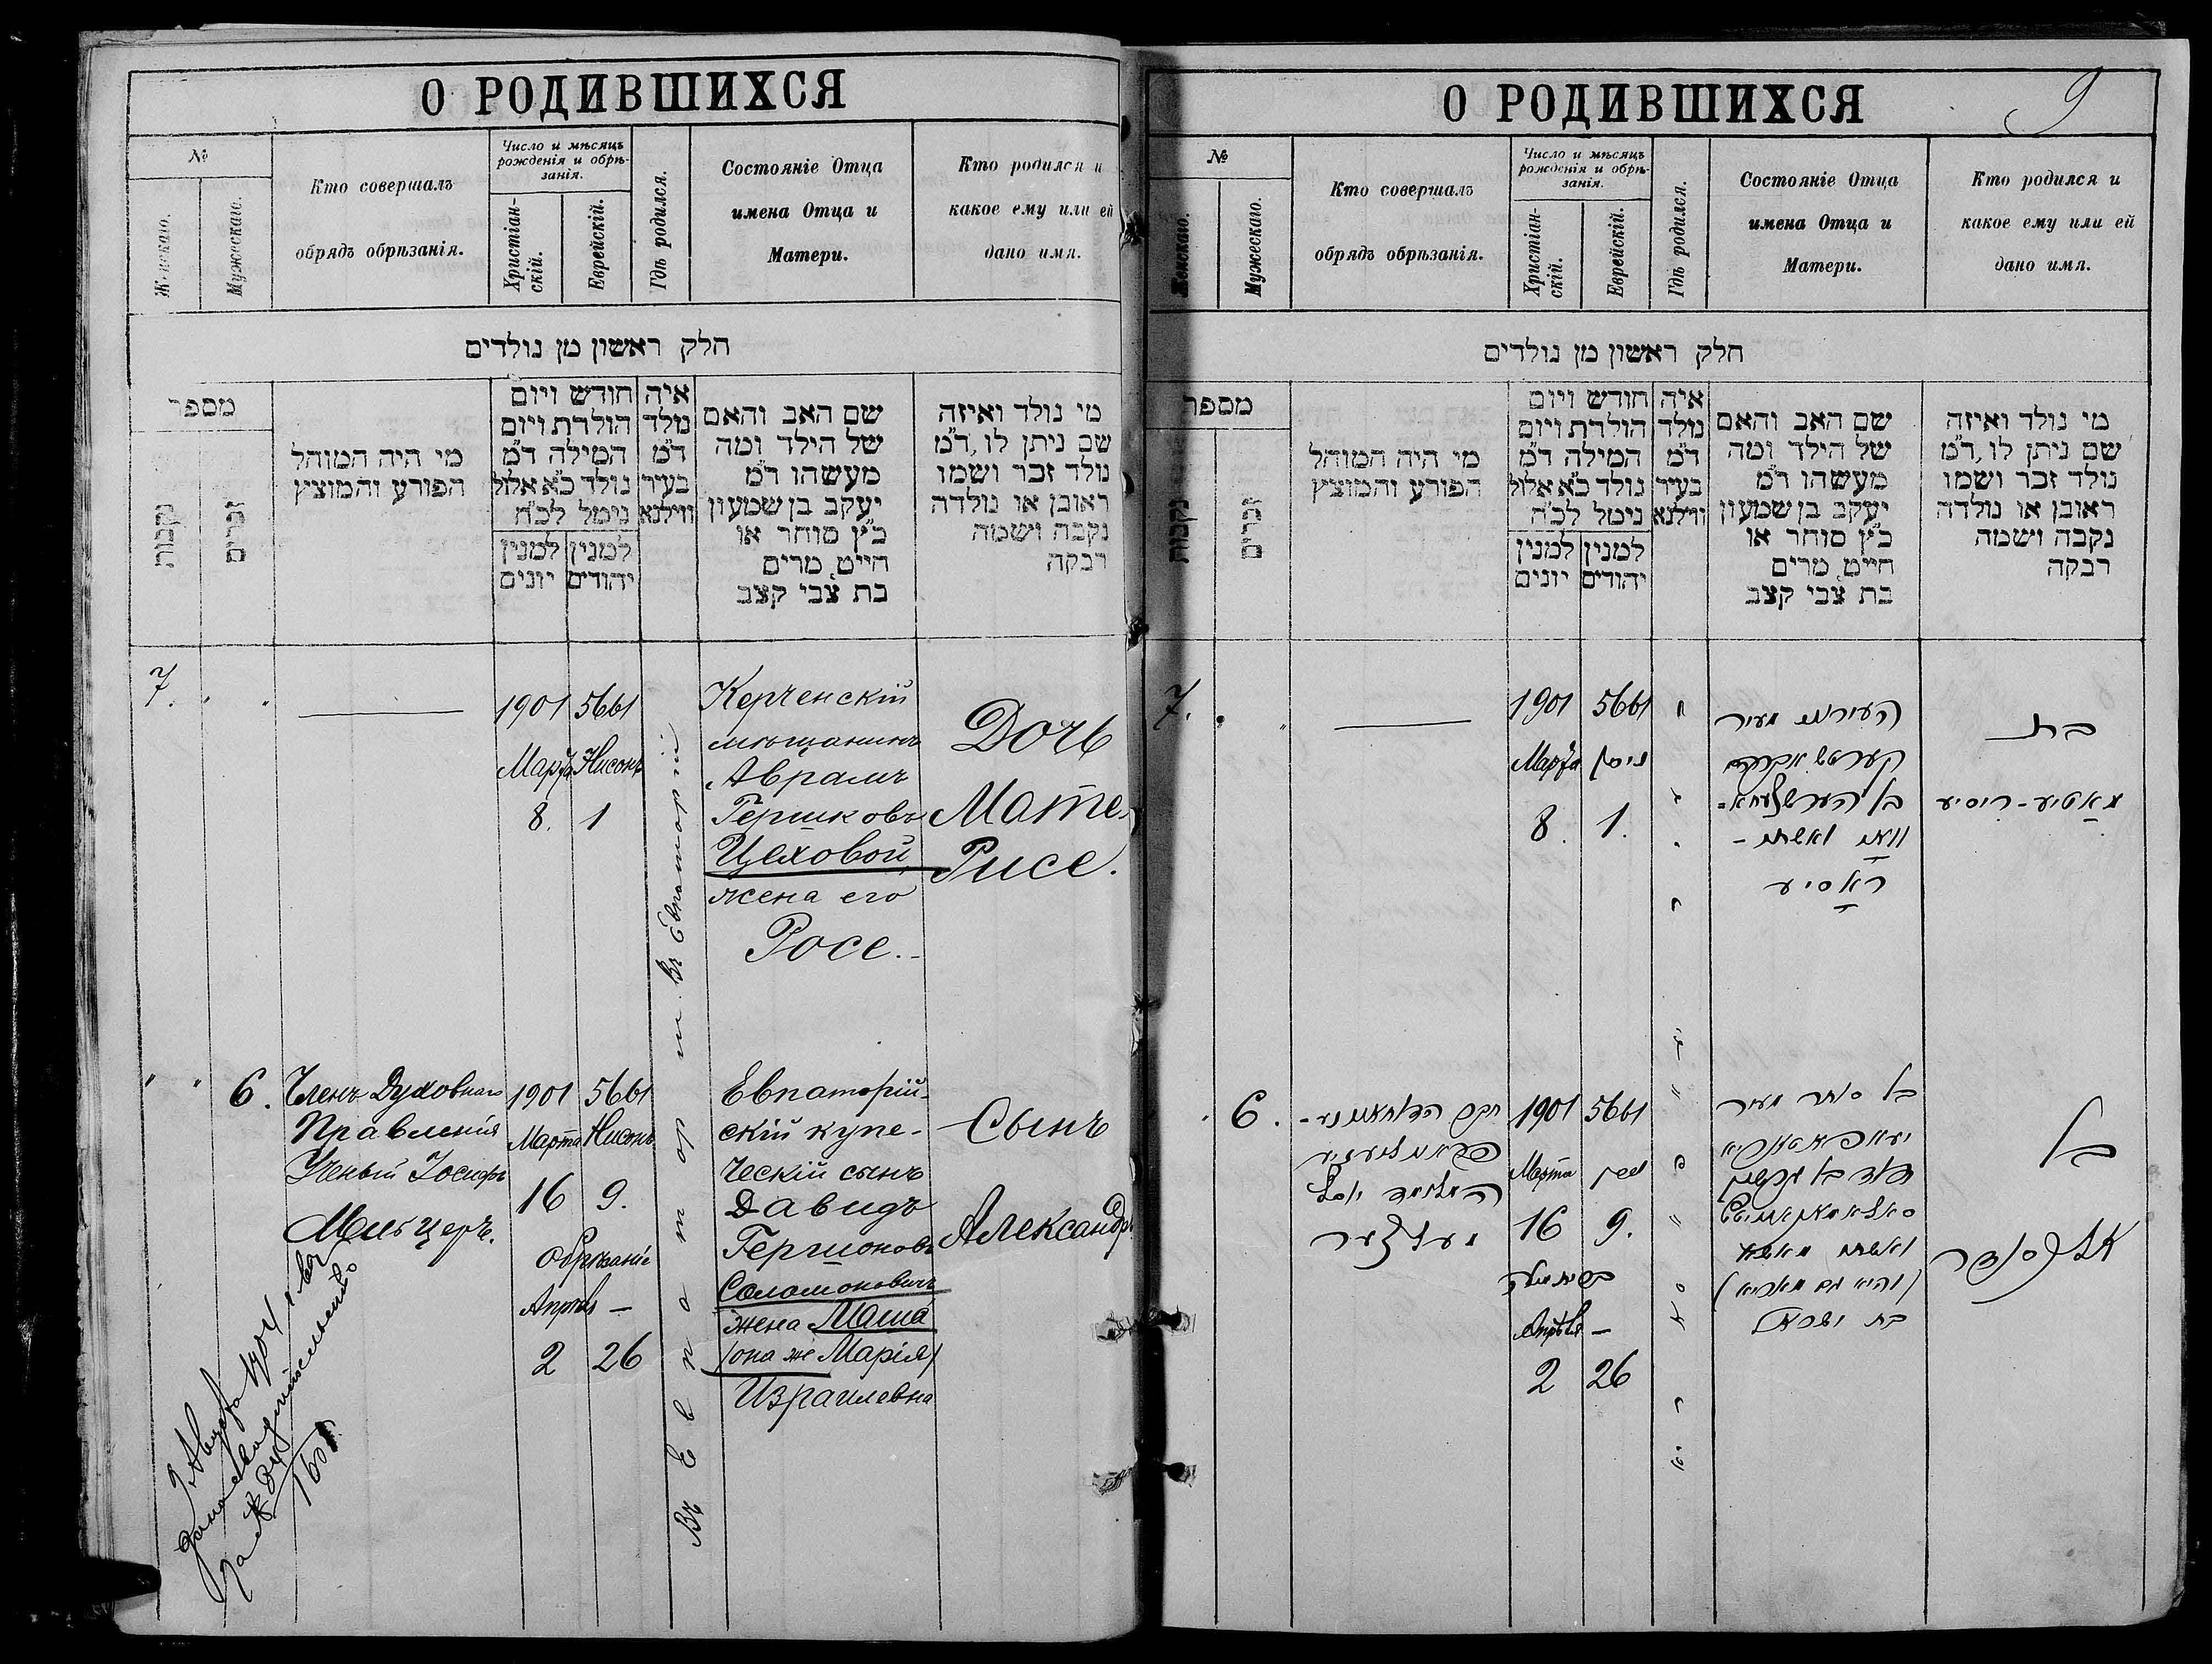 О РОДИВШИХСЯ
№
Женскаго.
Мужескаго.
Кто совершалъ
обрядъ обрѣзанія.
Число и мѣсяцъ
рожденія и обрѣ-
занія.
Христіан-
скій.
Еврейскій.
Гдѣ родился.
Состояніе Отца
имена Отца и
Матери.
Кто родился и
какое ему или ей
дано имя.
חלק ראשון מן נולדים
מספר
נקבות
זכרים
מי היה המוהל
הפורע והמוצץ
חודש ויום
הולדת ויום
המילה ד״מ
נולד כ״א אלול
נימל לכ״ח
למנין
יהודים
למנין
יונים
איה
נולד
ד״מ
בעיר
ווילנא
שם האב והאם
של הילד ומה
מעשהו ד״מ
יעקב בן שמעון
כ״ץ סוחר או
חייט, מרים
בת צבי קצב
מי נולד ואיזה
שם ניתן לו, ד״מ
נולד זכר ושמו
ראובן או נולדה
נקבה ושמה
רבקה
7.
1901 5661
Марта Нисонъ
8. 1
Керченскій
мѣщанинъ
Аврамъ
Гершковъ
Цеховой,
жена его
Росе.-
Дочь
Мате-
Рисе.
6.
Членъ Духовнаго
Правленія
Ученый Іосифъ
Мильцеръ.
1901 5661
Марта Нисонъ
16 9.
Обрѣзаніе
Апрѣля —
2 26
Въ Евпаторіи
Евпаторій-
скій купе-
ческій сынъ
Давидъ
Гершоновъ
Соломоновичъ
жена Маша
(она же Марія)
Израилевна
Сынъ
Александръ
О РОДИВШИХСЯ
9
№
Женскаго.
Мужескаго.
Кто совершалъ
обрядъ обрѣзанія.
Число и мѣсяцъ
рожденія и обрѣ-
занія.
Христіан-
скій.
Еврейскій.
Гдѣ родился.
Состояніе Отца
имена Отца и
Матери.
Кто родился и
какое ему или ей
дано имя.
חלק ראשון מן נולדים
מספר
נקבות
זכרים
מי היה המוהל
הפורע והמוצץ
חודש ויום
הולדת ויום
המילה ד״מ
נולד כ״א אלול
נימל לכ״ח
למנין
יהודים
למנין
יונים
איה
נולד
ד״מ
בעיר
ווילנא
שם האב והאם
של הילד ומה
מעשהו ד״מ
יעקב בן שמעון
כ״ץ סוחר או
חייט, מרים
בת צבי קצב
מי נולד ואיזה
שם ניתן לו, ד״מ
נולד זכר ושמו
ראובן או נולדה
נקבה ושמה
רבקה
7.
1901 5661
Марта ניסן
8. 1.
מעיר
קערטש אברהם
בן
ואשתו
ראָסיע
בת
מאָטיע-ריסיע
6.
מעלצער
1901 5661
Марта ניסן
16 9.
Апрѣля —
2 26
בן סוחר מעיר
דוד בן גרשון
ואשתו מאשא
(והיא גם מאריא)
בן
אלכסנדר